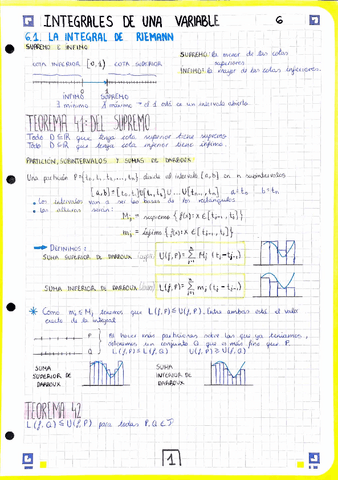 INTEGRALES DE UNA VARIABLE 6
6.1. LA INTEGRAL DE RIEMANN
SUPREMO E ÍNFIMO
SUPREMO: la menor de las cotas superiores
COTA INFERIOR [0,1) COTA SUPERIOR
ÍNFIMO: la mayor de las cotas inferiores.
0 1
ÍNFIMO SUPREMO
TEOREMA 41: DEL SUPREMO
Todo D⊆ℝ que tenga cota superior tiene supremo
Todo D⊆ℝ que tenga cota inferior tiene ínfimo.
PARTICIÓN, SUBINTERVALOS Y SUMAS DE DARBOUX
Una partición P={t₀, t₁, t₂, ..., tₙ} divide al intervalo [a,b] en n subintervalos
[a,b] = [t₀,t₁]U[t₁,t₂]U...U[tₙ₋₁,tₙ] a=t₀ b=tₙ
• Los intervalos van a ser las bases de los rectángulos.
• Las alturas serán:
Mⱼ = supremo {f(x): x∈[tⱼ₋₁, tⱼ]}
mⱼ = ínfimo {f(x): x∈[tⱼ₋₁, tⱼ]}
→ DEFINIMOS:
SUMA SUPERIOR DE DARBOUX U(f,P) = Σ Mⱼ (tⱼ-tⱼ₋₁)
SUMA INFERIOR DE DARBOUX L(f,P) = Σ mⱼ (tⱼ-tⱼ₋₁)
* Como mⱼ≤Mⱼ tenemos que L(f,P)≤U(f,P). Entre ambas está el valor
exacto de la integral
P Al hacer más particiones sobre las que ya teníamos,
obtenemos un conjunto Q que es más fino que P.
Q L(f,P)≤L(f,Q) U(f,P)≥U(f,Q)
SUMA SUPERIOR DE DARBOUX
SUMA INFERIOR DE DARBOUX
TEOREMA 42
L(f,Q)≤U(f,P) para todas P,Q∈𝒫
1